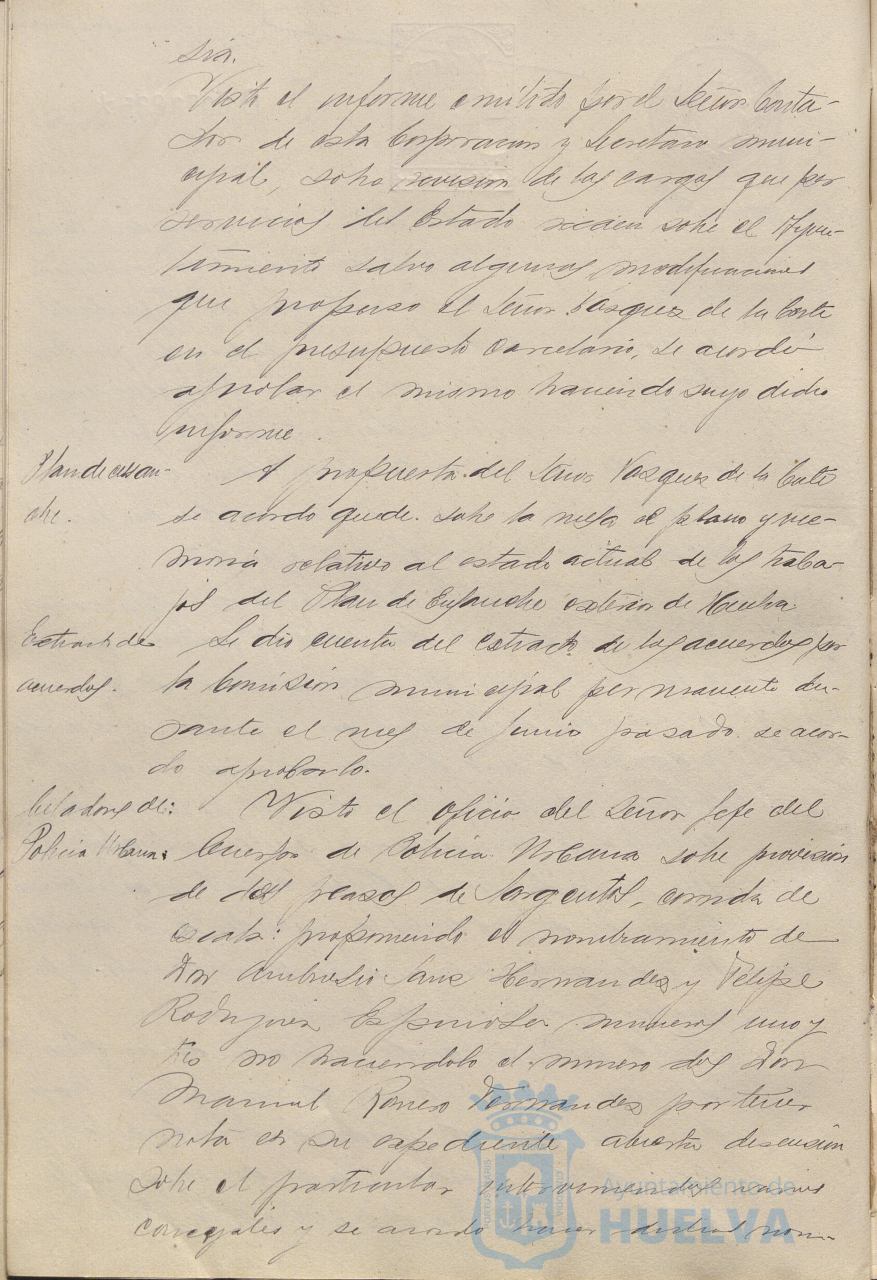 sia.
Visto el informe emitido por el Señor Conta-
dor de esta Corporacion y Secretario muni-
cipal, sobre revision de las cargas que por
servicios del Estado recaen sobre el Ayun-
tamiento salvo algunas modificaciones
que propuso el Señor Vasquez de la Corte
en el presupuesto carcelario, se acordó
aprobar el mismo haciendo suyo dicho
informe.
Plan de ensan-
che.
A propuesta del Señor Vasquez de la Corte
se acordo quede sobre la mesa el plano y me-
moria relativo al estado actual de los traba-
jos del Plan de Ensanche exterior de Huelva
Extracto de
acuerdos.
Se dio cuenta del extracto de los acuerdos por
la Comisión municipal permanente du-
rante el mes de Junio pasado se acor-
do aprobarlo.
Celadores de:
Policia Urbana:
Visto el oficio del Señor Jefe del
Cuerpo de Policia Urbana sobre provisión
de dos plazas de Sargentos, corrida de
escala: proponiendo el nombramiento de
Don Ambrosio Sanz Hernandez y Felipe
Rodriguez Espinosa numeros uno y
tres no haciendolo el numero dos Don
Manuel Romero Fernandez por tener
nota en su expediente abierta discusión
sobre el particular interviniendo varios
concejales y se acordo hacer dichos nom-
Ayuntamiento de
HUELVA